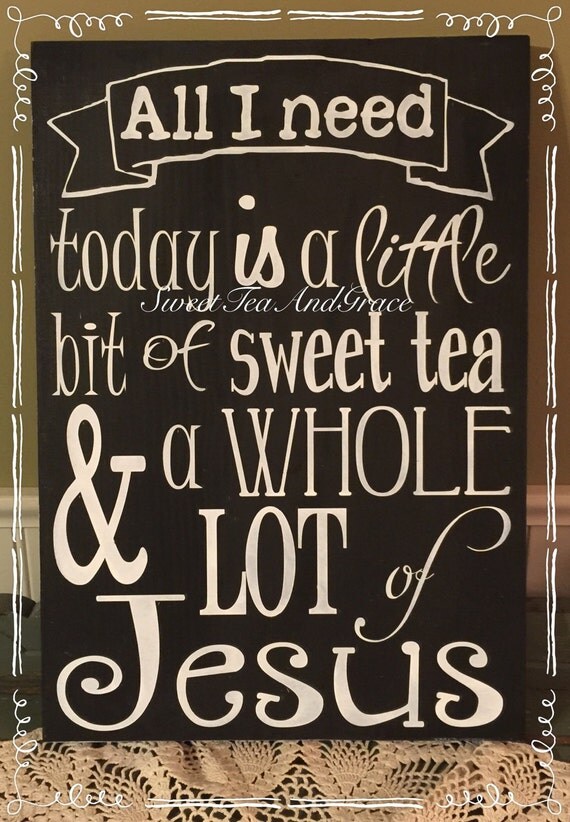 All I need
today is a little
SweetTeaAndGrace
bit of sweet tea
& a WHOLE
LOT of
Jesus